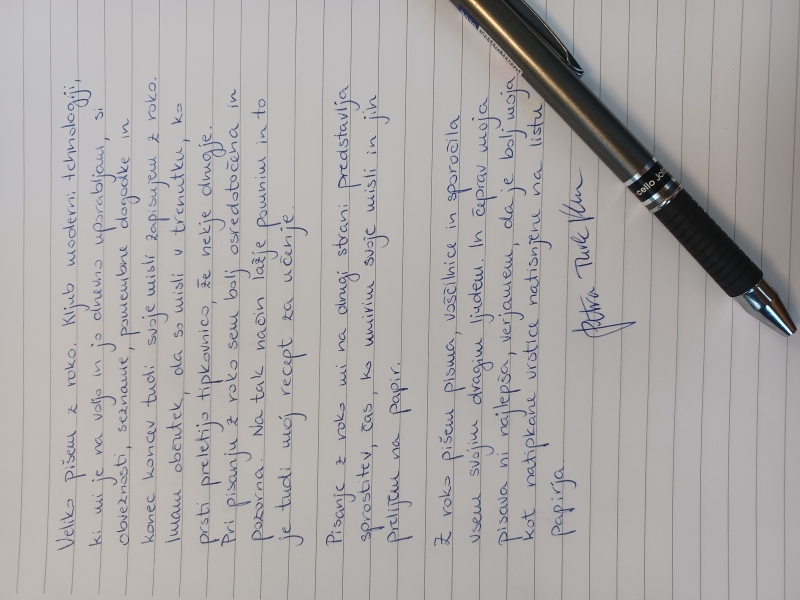 Veliko pišem z roko. Kljub moderni tehnologiji,
ki mi je na voljo in jo dnevno uporabljam, si
obveznosti, sezname, pomembne dogodke in
konec koncev tudi svoje misli zapisujem z roko.
Imam občutek, da so misli v trenutku, ko
prsti preletijo tipkovnico, že nekje drugje.
Pri pisanju z roko sem bolj osredotočena in
pozorna. Na tak način lažje pomnim in to
je tudi moj recept za učenje.
Pisanje z roko mi na drugi strani predstavlja
sprostitev, čas, ko umirim svoje misli in jih
prelijem na papir.
Z roko pišem pisma, voščilnice in sporočila
vsem svojim dragim ljudem. In čeprav moja
pisava ni najlepša, verjamem, da je bolj moja
kot natipkane vrstice natisnjene na listu
papirja.
Petra Turk
cello